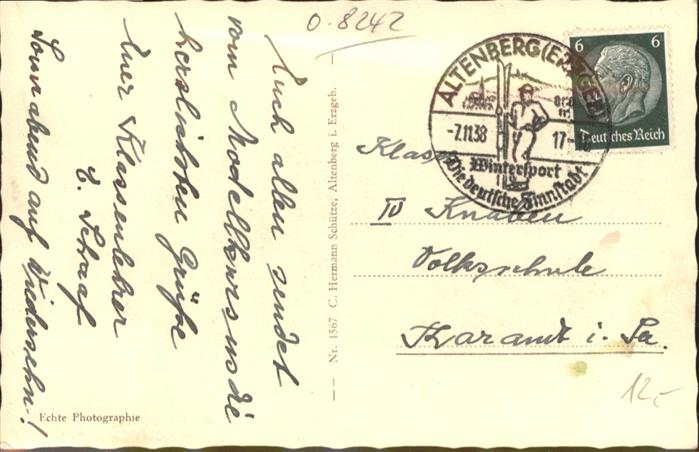 0.8242
Euch allen sendet
vom Modellkurs die
herzlichsten Grüße
Euer Klassenlehrer
E. Schaaf
Sonnabend auf Wiedersehn!
Echte Photographie
Nr. 1567 C. Hermann Schütze, Altenberg i. Erzgeb.
ALTENBERG (ERZGEB)
-7.11.38
17-18
Wintersport
Die deutsche Zinnstadt
6 6
Deutsches Reich
Klasse
IV Knaben
Volksschule
Tharandt i. Sa.
12,-